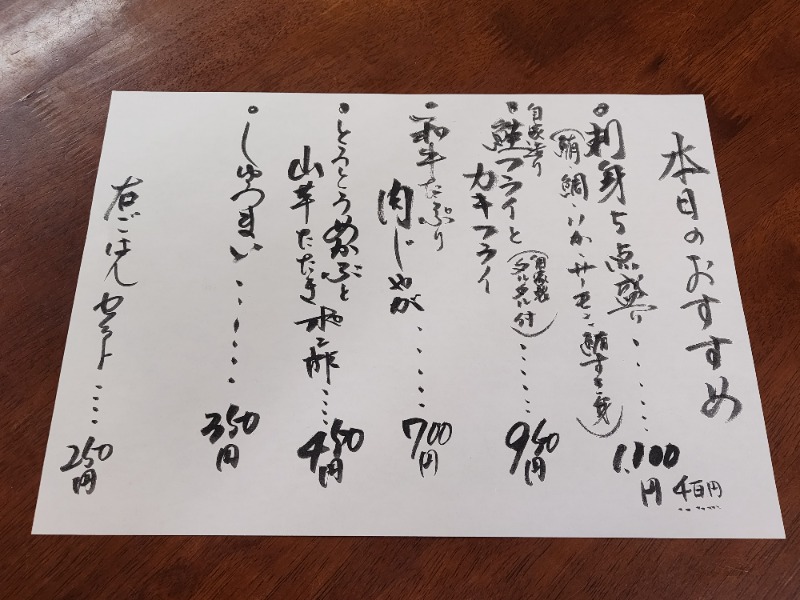 本日のおすすめ
刺身5点盛り……1,100円
(鮪 鯛 いか サーモン 鮪すき身)
自家造り
鮭フライと
カキフライ
(自家製タルタル付)……950円
和牛たっぷり
肉じゃが……700円
とろとろめかぶと
山芋たたきポン酢……450円
しゅうまい……350円
右ごはんセット……250円